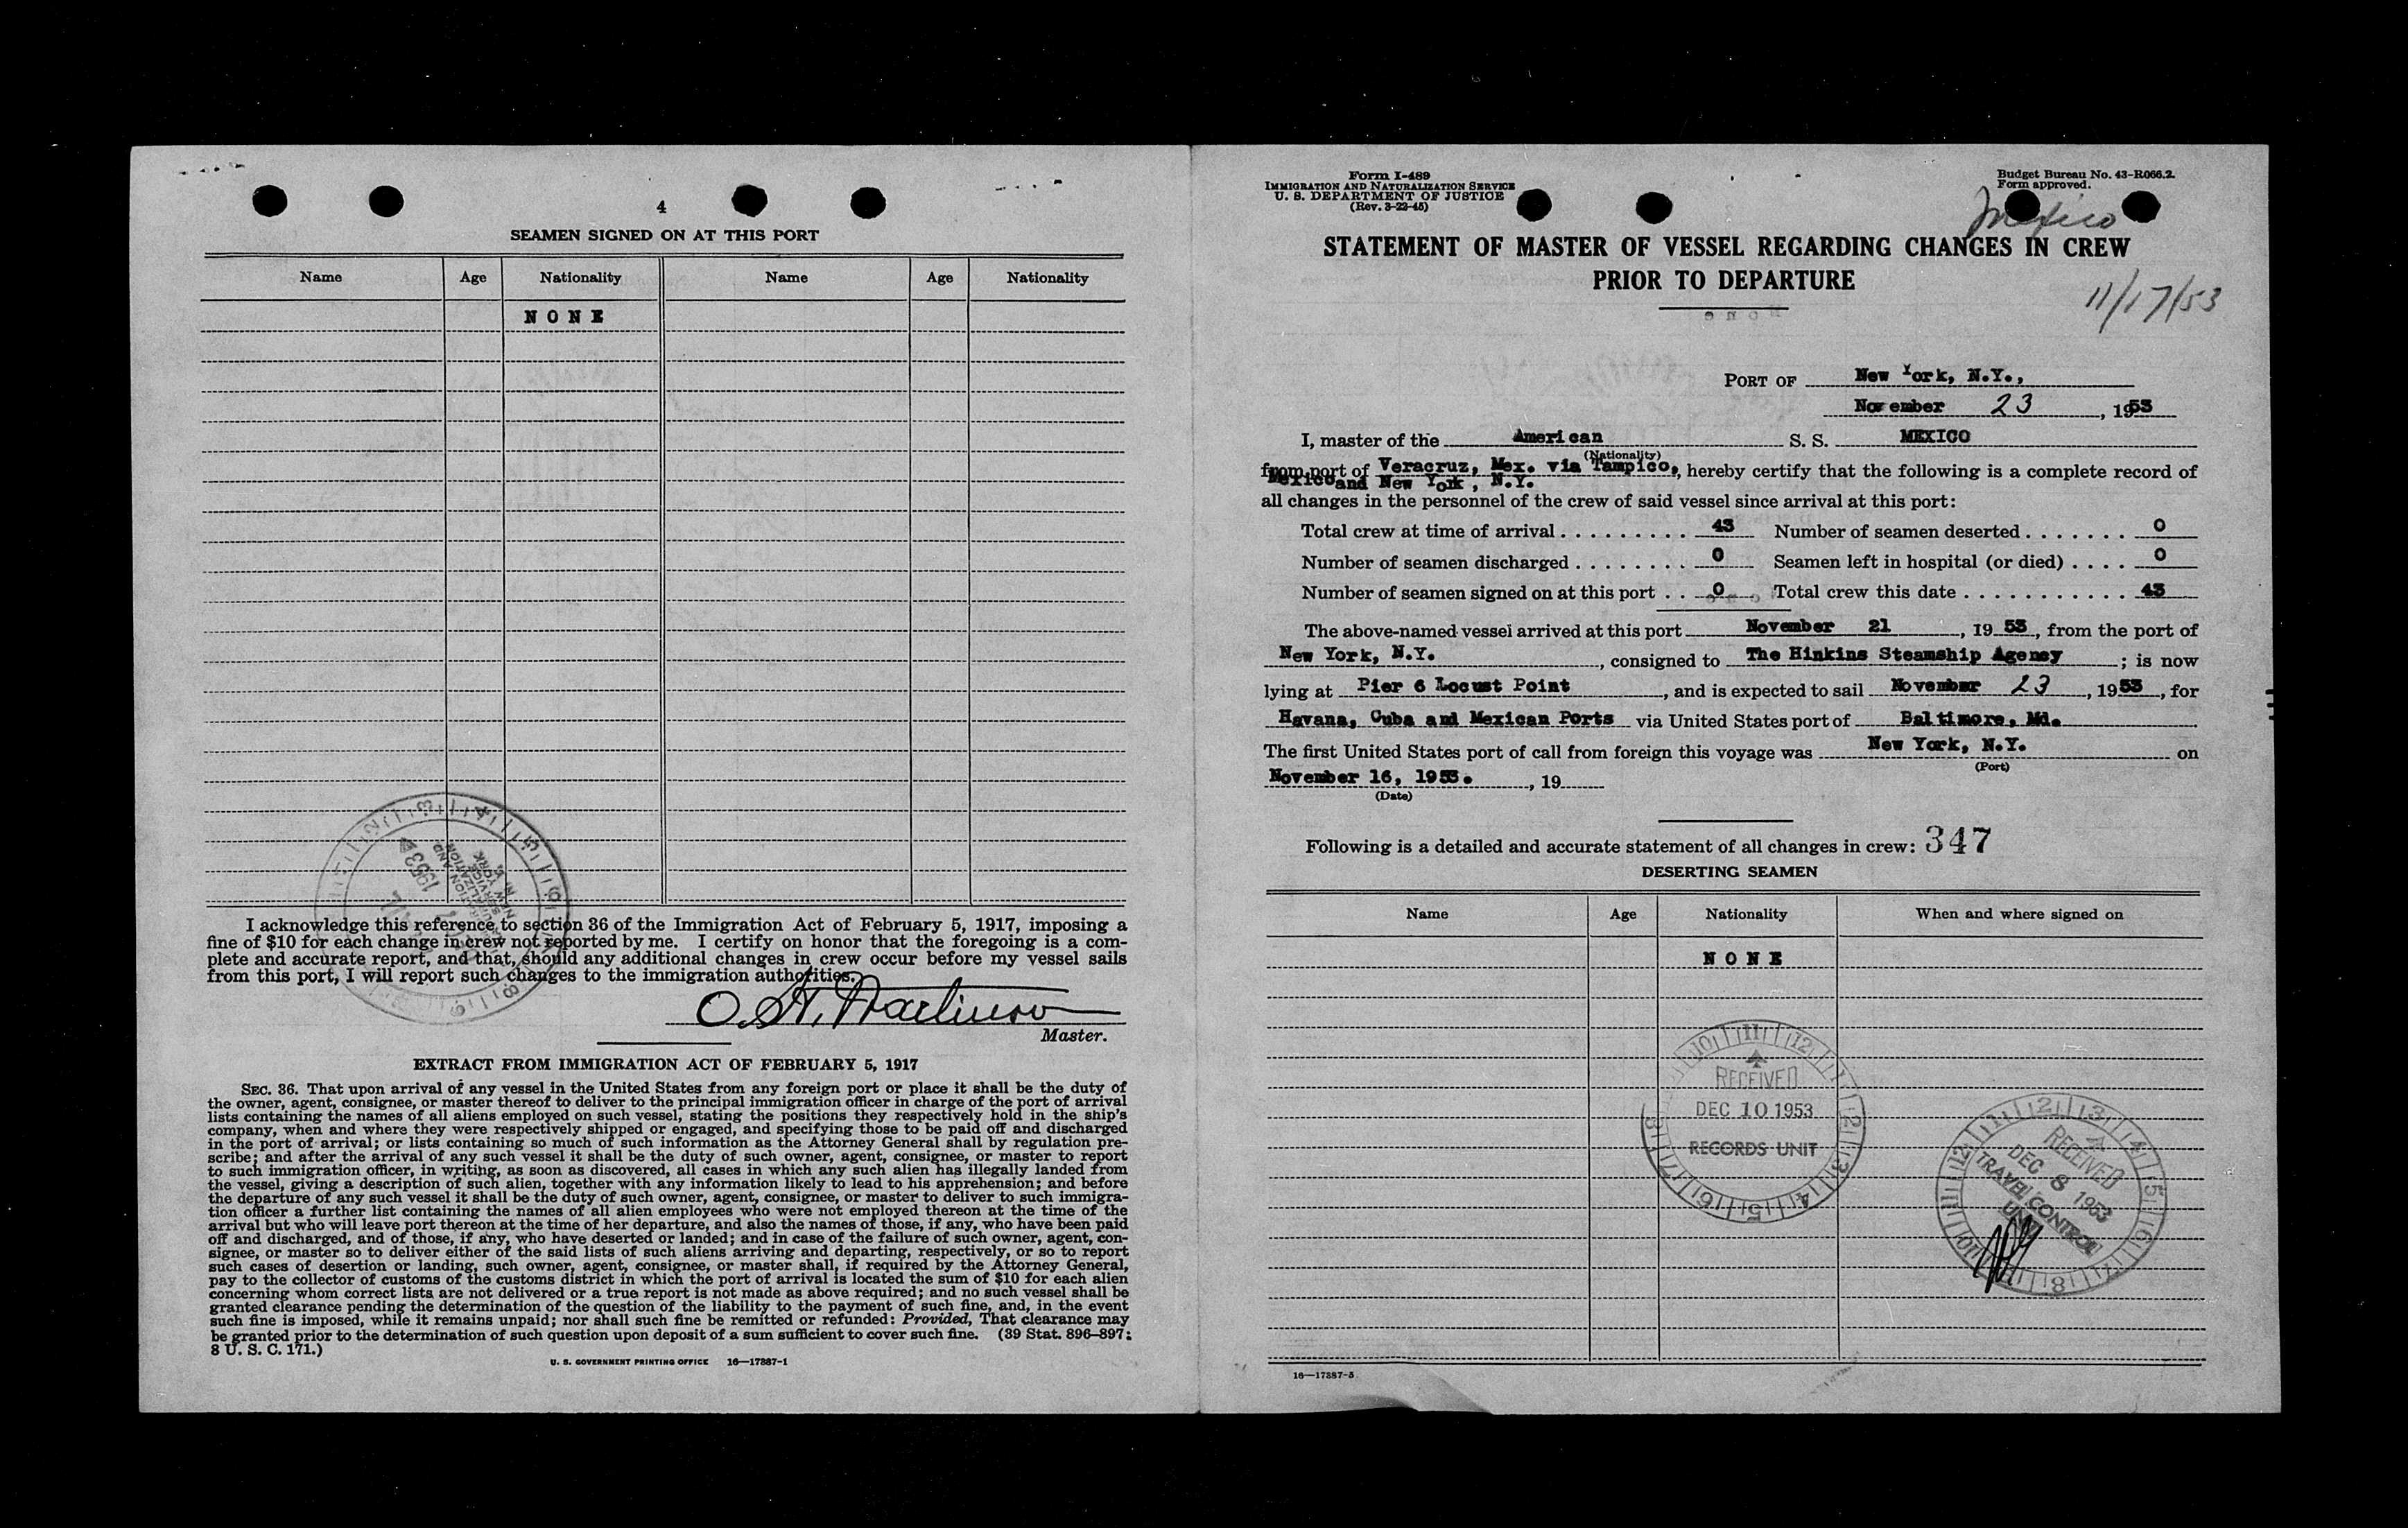 4
SEAMEN SIGNED ON AT THIS PORT
Name Age Nationality Name Age Nationality
NONE
I acknowledge this reference to section 36 of the Immigration Act of February 5, 1917, imposing a
fine of $10 for each change in crew not reported by me. I certify on honor that the foregoing is a com-
plete and accurate report, and that, should any additional changes in crew occur before my vessel sails
from this port, I will report such changes to the immigration authorities.
Master.
EXTRACT FROM IMMIGRATION ACT OF FEBRUARY 5, 1917
SEC. 36. That upon arrival of any vessel in the United States from any foreign port or place it shall be the duty of
the owner, agent, consignee, or master thereof to deliver to the principal immigration officer in charge of the port of arrival
lists containing the names of all aliens employed on such vessel, stating the positions they respectively hold in the ship's
company, when and where they were respectively shipped or engaged, and specifying those to be paid off and discharged
in the port of arrival; or lists containing so much of such information as the Attorney General shall by regulation pre-
scribe; and after the arrival of any such vessel it shall be the duty of such owner, agent, consignee, or master to report
to such immigration officer, in writing, as soon as discovered, all cases in which any such alien has illegally landed from
the vessel, giving a description of such alien, together with any information likely to lead to his apprehension; and before
the departure of any such vessel it shall be the duty of such owner, agent, consignee, or master to deliver to such immigra-
tion officer a further list containing the names of all alien employees who were not employed thereon at the time of the
arrival but who will leave port thereon at the time of her departure, and also the names of those, if any, who have been paid
off and discharged, and of those, if any, who have deserted or landed; and in case of the failure of such owner, agent, con-
signee, or master so to deliver either of the said lists of such aliens arriving and departing, respectively, or so to report
such cases of desertion or landing, such owner, agent, consignee, or master shall, if required by the Attorney General,
pay to the collector of customs of the customs district in which the port of arrival is located the sum of $10 for each alien
concerning whom correct lists are not delivered or a true report is not made as above required; and no such vessel shall be
granted clearance pending the determination of the question of the liability to the payment of such fine, and, in the event
such fine is imposed, while it remains unpaid; nor shall such fine be remitted or refunded: Provided, That clearance may
be granted prior to the determination of such question upon deposit of a sum sufficient to cover such fine. (39 Stat. 896–897;
8 U. S. C. 171.)
U. S. GOVERNMENT PRINTING OFFICE 16—17387-1
Form I-489
IMMIGRATION AND NATURALIZATION SERVICE
U. S. DEPARTMENT OF JUSTICE
(Rev. 3-22-45)
Budget Bureau No. 43-R066.2.
Form approved.
Mexico
STATEMENT OF MASTER OF VESSEL REGARDING CHANGES IN CREW
PRIOR TO DEPARTURE
11/17/53
PORT OF New York, N.Y.,
November 23, 1953
I, master of the American S. S. MEXICO
(Nationality)
from port of Veracruz, Mex. via Tampico, hereby certify that the following is a complete record of
Mexico and New York, N.Y.
all changes in the personnel of the crew of said vessel since arrival at this port:
Total crew at time of arrival . . . . . . . . . 43 Number of seamen deserted . . . . . . . 0
Number of seamen discharged . . . . . . . . 0 Seamen left in hospital (or died) . . . . 0
Number of seamen signed on at this port . . 0 Total crew this date . . . . . . . . . . . 43
The above-named vessel arrived at this port November 21, 19 53, from the port of
New York, N.Y., consigned to The Hinkins Steamship Agency; is now
lying at Pier 6 Locust Point, and is expected to sail November 23, 1953, for
Havana, Cuba and Mexican Ports via United States port of Baltimore, Md.
The first United States port of call from foreign this voyage was New York, N.Y. on
(Port)
November 16, 1953., 19
(Date)
Following is a detailed and accurate statement of all changes in crew: 347
DESERTING SEAMEN
Name Age Nationality When and where signed on
NONE
RECEIVED
DEC 10 1953
RECORDS UNIT
RECEIVED
DEC 8 1953
TRAVEL CONTROL
UNIT
16—17387-3